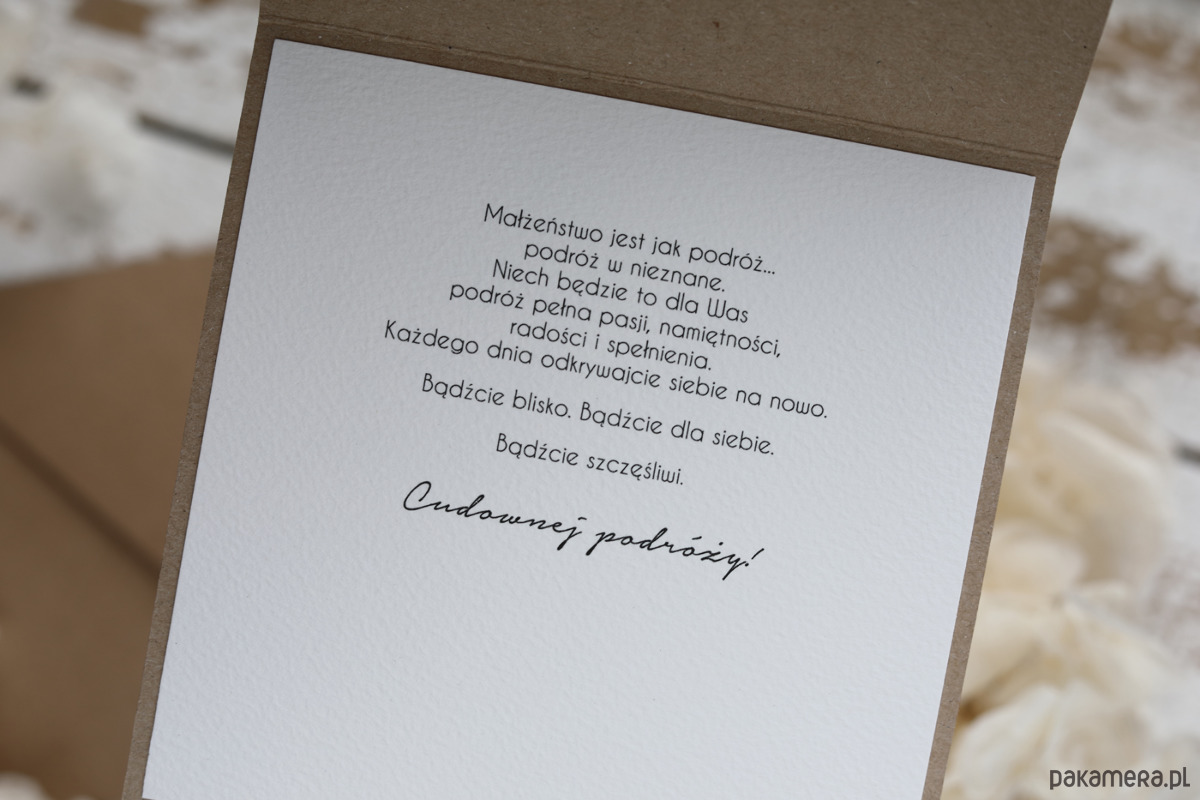 Małżeństwo jest jak podróż...
podróż w nieznane.
Niech będzie to dla Was
podróż pełna pasji, namiętności,
radości i spełnienia.
Każdego dnia odkrywajcie siebie na nowo.
Bądźcie blisko. Bądźcie dla siebie.
Bądźcie szczęśliwi.
Cudownej podróży!
pakamera.pl